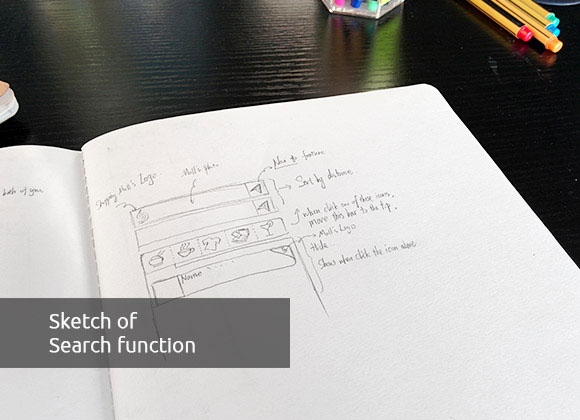 Shopping Mall's Logo
Mall's photo
New feature
Sort by distance
when click one of these icons,
move this bar to the top.
Mall's Logo
Hide
Show when click the icon above
Name
Sketch of
Search function